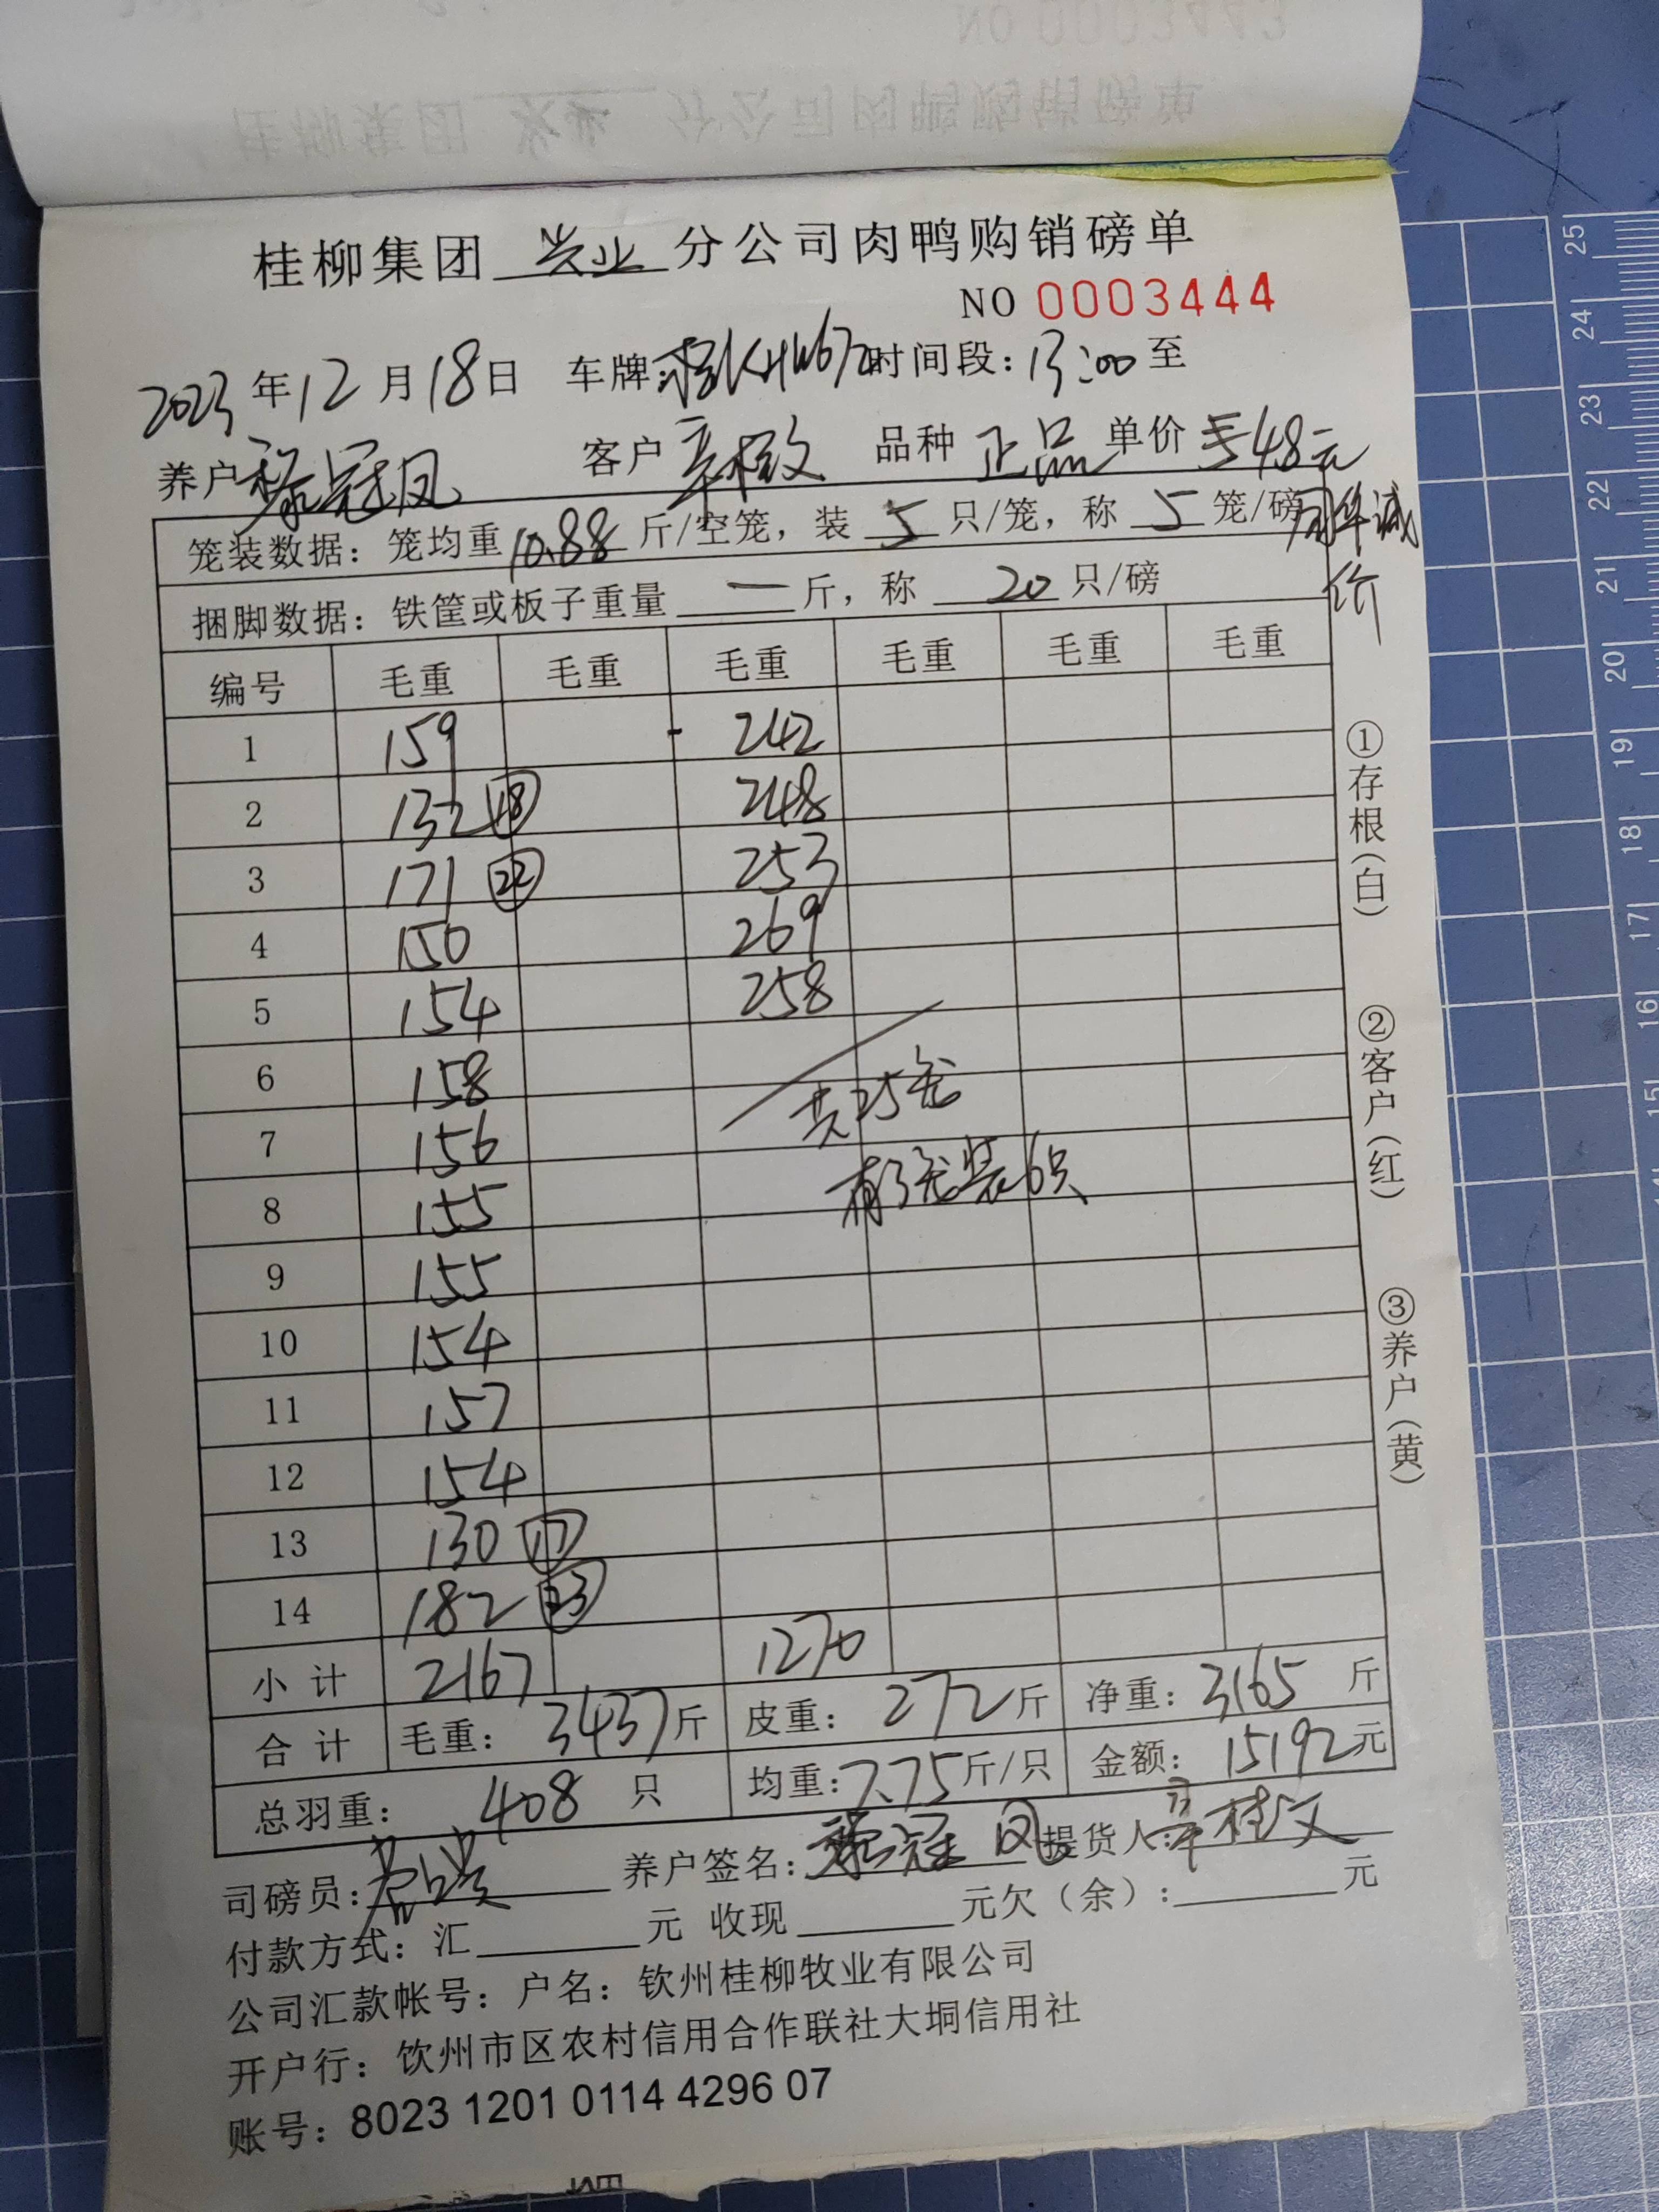 桂柳集团 兴业 分公司肉鸭购销磅单
NO 0003444
2023年12月18日 车牌: 时间段:13:00至
养户 黎冠凤 客户 品种 正品 单价 4.8元
周华诚价
笼装数据: 笼均重10.88斤/空笼, 装 5 只/笼, 称 5 笼/磅
捆脚数据: 铁筐或板子重量 一 斤, 称 20 只/磅
编号 毛重 毛重 毛重 毛重 毛重 毛重
1 159 242
2 132 ⑱ 248
3 171 ㉒ 253
4 150 269
5 154 258
6 158
共25笼
7 156
有3笼装6只
8 155
9 155
10 154
11 157
12 154
13 130 ⑰
14 182 ㉓
小计 2167 1270
合计 毛重: 3437斤 皮重: 272斤 净重: 3165 斤
总羽重: 408 只 均重:7.75斤/只 金额: 15192元
司磅员: 养户签名:黎冠凤 提货人:
付款方式: 汇 元 收现 元欠(余): 元
公司汇款帐号: 户名: 钦州桂柳牧业有限公司
开户行: 钦州市区农村信用合作联社大垌信用社
账号: 8023 1201 0114 4296 07
①存根(白)
②客户(红)
③养户(黄)